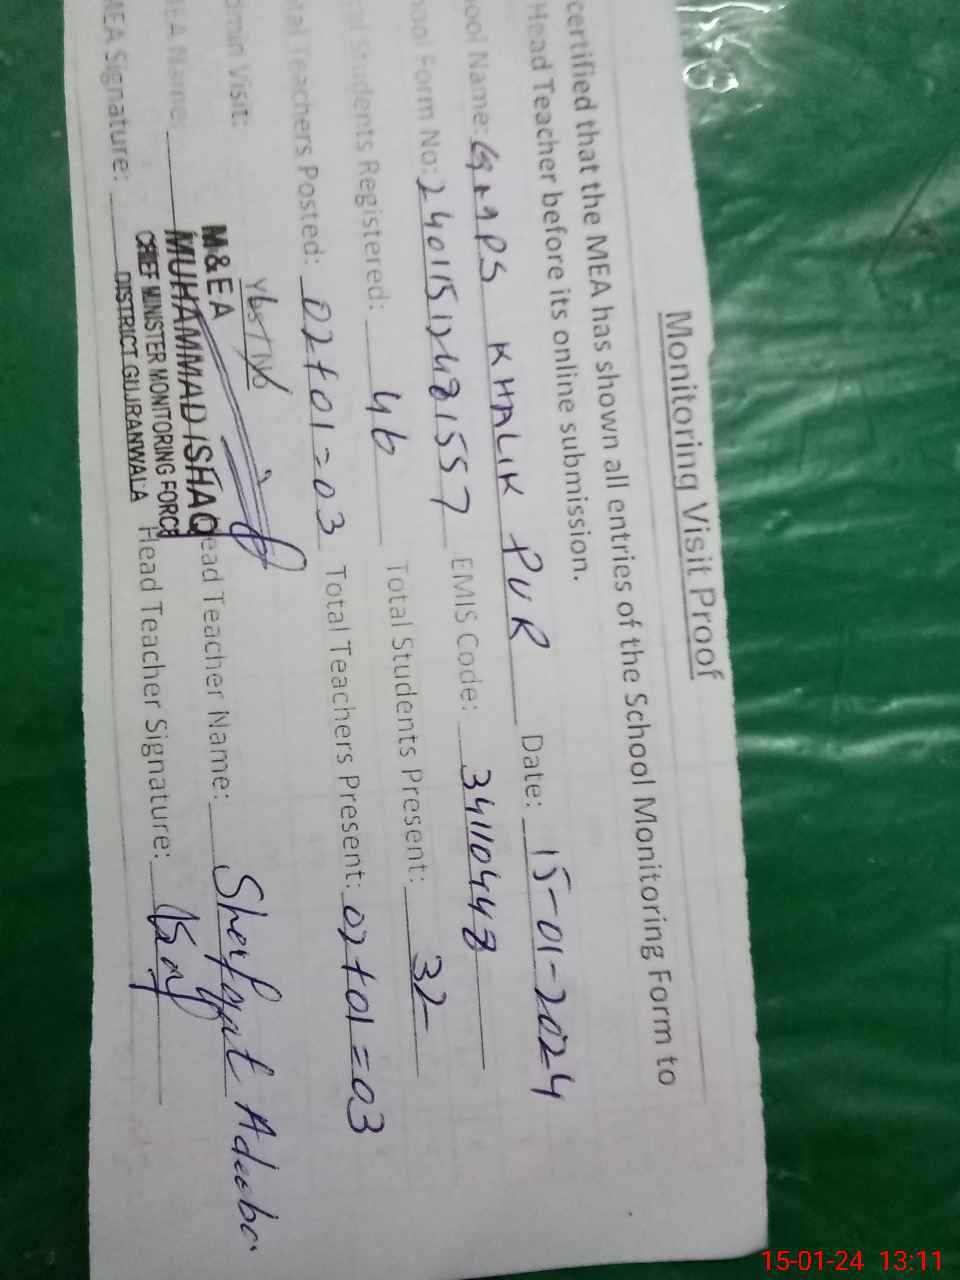 Monitoring Visit Proof
certified that the MEA has shown all entries of the School Monitoring Form to
Head Teacher before its online submission.
ool Name: GMPS KHALIK PUR Date: 15-01-2024
ool Form No: 24011512481557 EMIS Code: 34110448
al Students Registered: 46 Total Students Present: 32
tal Teachers Posted: 02+01=03 Total Teachers Present: 02+01=03
dmin Visit: Yes/No
MEA Name: M&EA MUHAMMAD ISHAQ ead Teacher Name: Adeeba
CHIEF MINISTER MONITORING FORCE
MEA Signature: DISTRICT GUJRANWALA Head Teacher Signature:
15-01-24 13:11